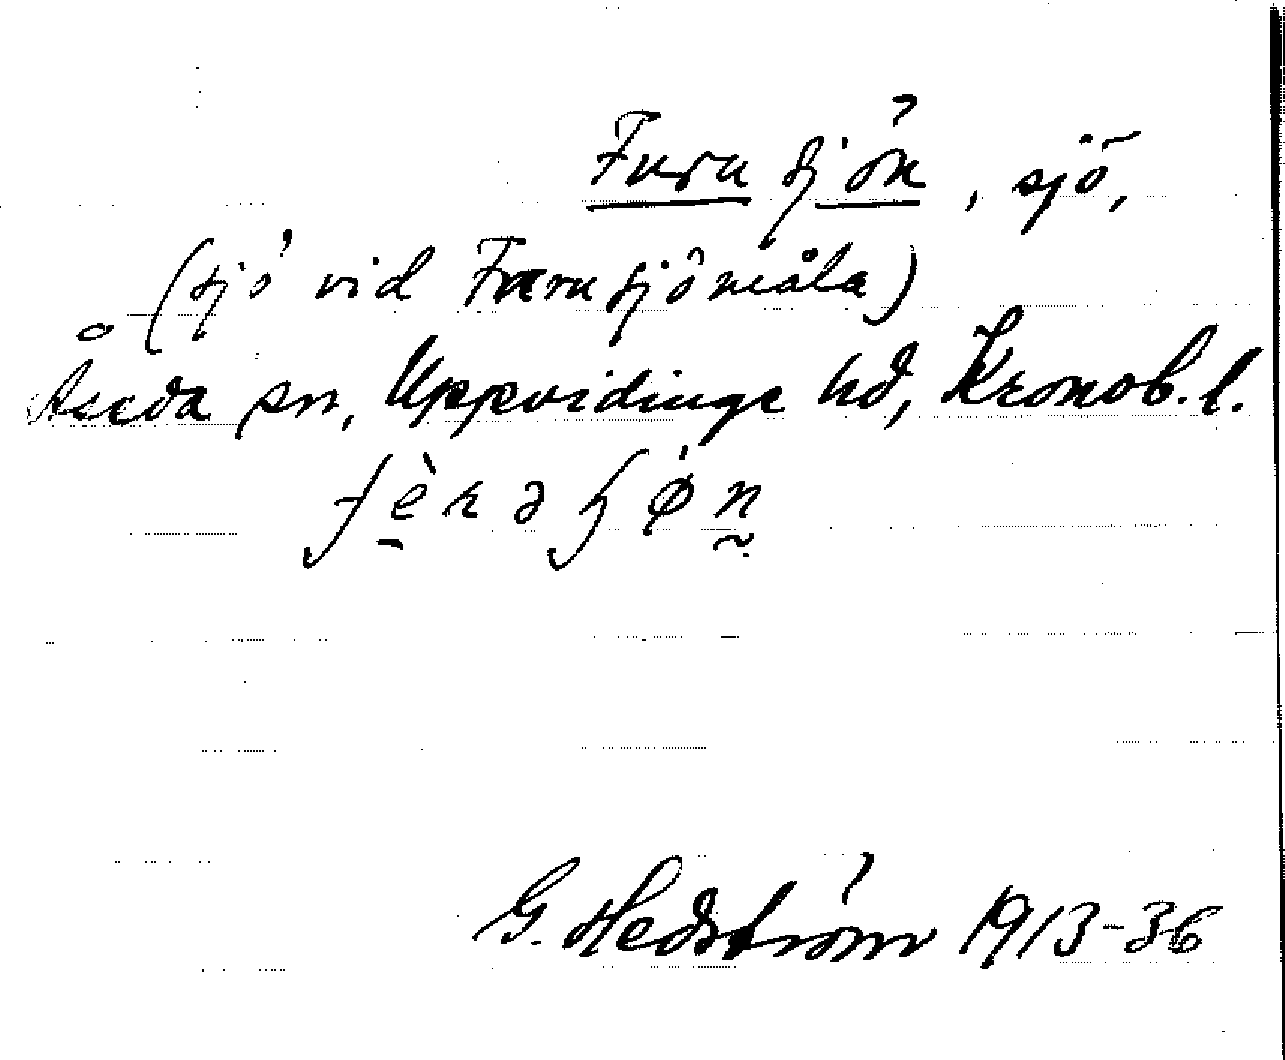 Furusjön, sjö,
(sjö vid Furusjömåla)
Åseda sn, Uppvidinge hd, Kronob. l.
fèrəʃøn
G. Hedström 1913-36